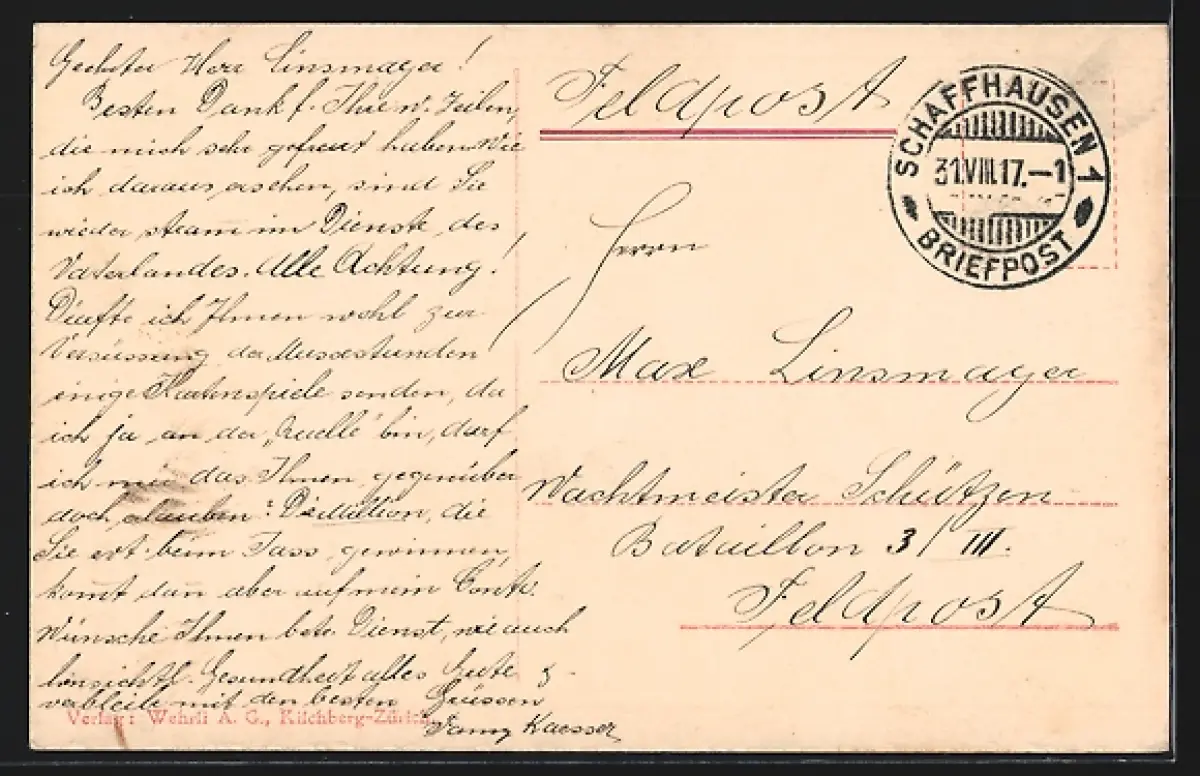 Geehrter Herr Linsmayer!
Besten Dank f. Ihre w. Zeilen,
die mich sehr gefreut haben. Wie
ich daraus ersehen, sind Sie
wieder stramm im Dienste des
Vaterlandes. Alle Achtung!
Dürfte ich Ihnen wohl zur
Versüssung der Mussestunden
einige Kartenspiele senden, da
ich ja an der „Quelle" bin, darf
ich mir das Ihnen gegenüber
doch erlauben? Die Million, die
Sie evt. beim Jass gewinnen,
komt dan aber auf mein Conto.
Wünsche Ihnen bete Dienst, wie auch
hinsichtl. Gesundheit alles Gute &
verbleibe mit den besten Grüssen
Fanny Kaesser
Verlag: Wehrli A. G., Kilchberg-Zürich
Feldpost
SCHAFFHAUSEN 1
31.VIII.17.-1
BRIEFPOST
Herrn
Max Linsmayer
Wachtmeister Schützen
Bataillon 3/III.
Feldpost